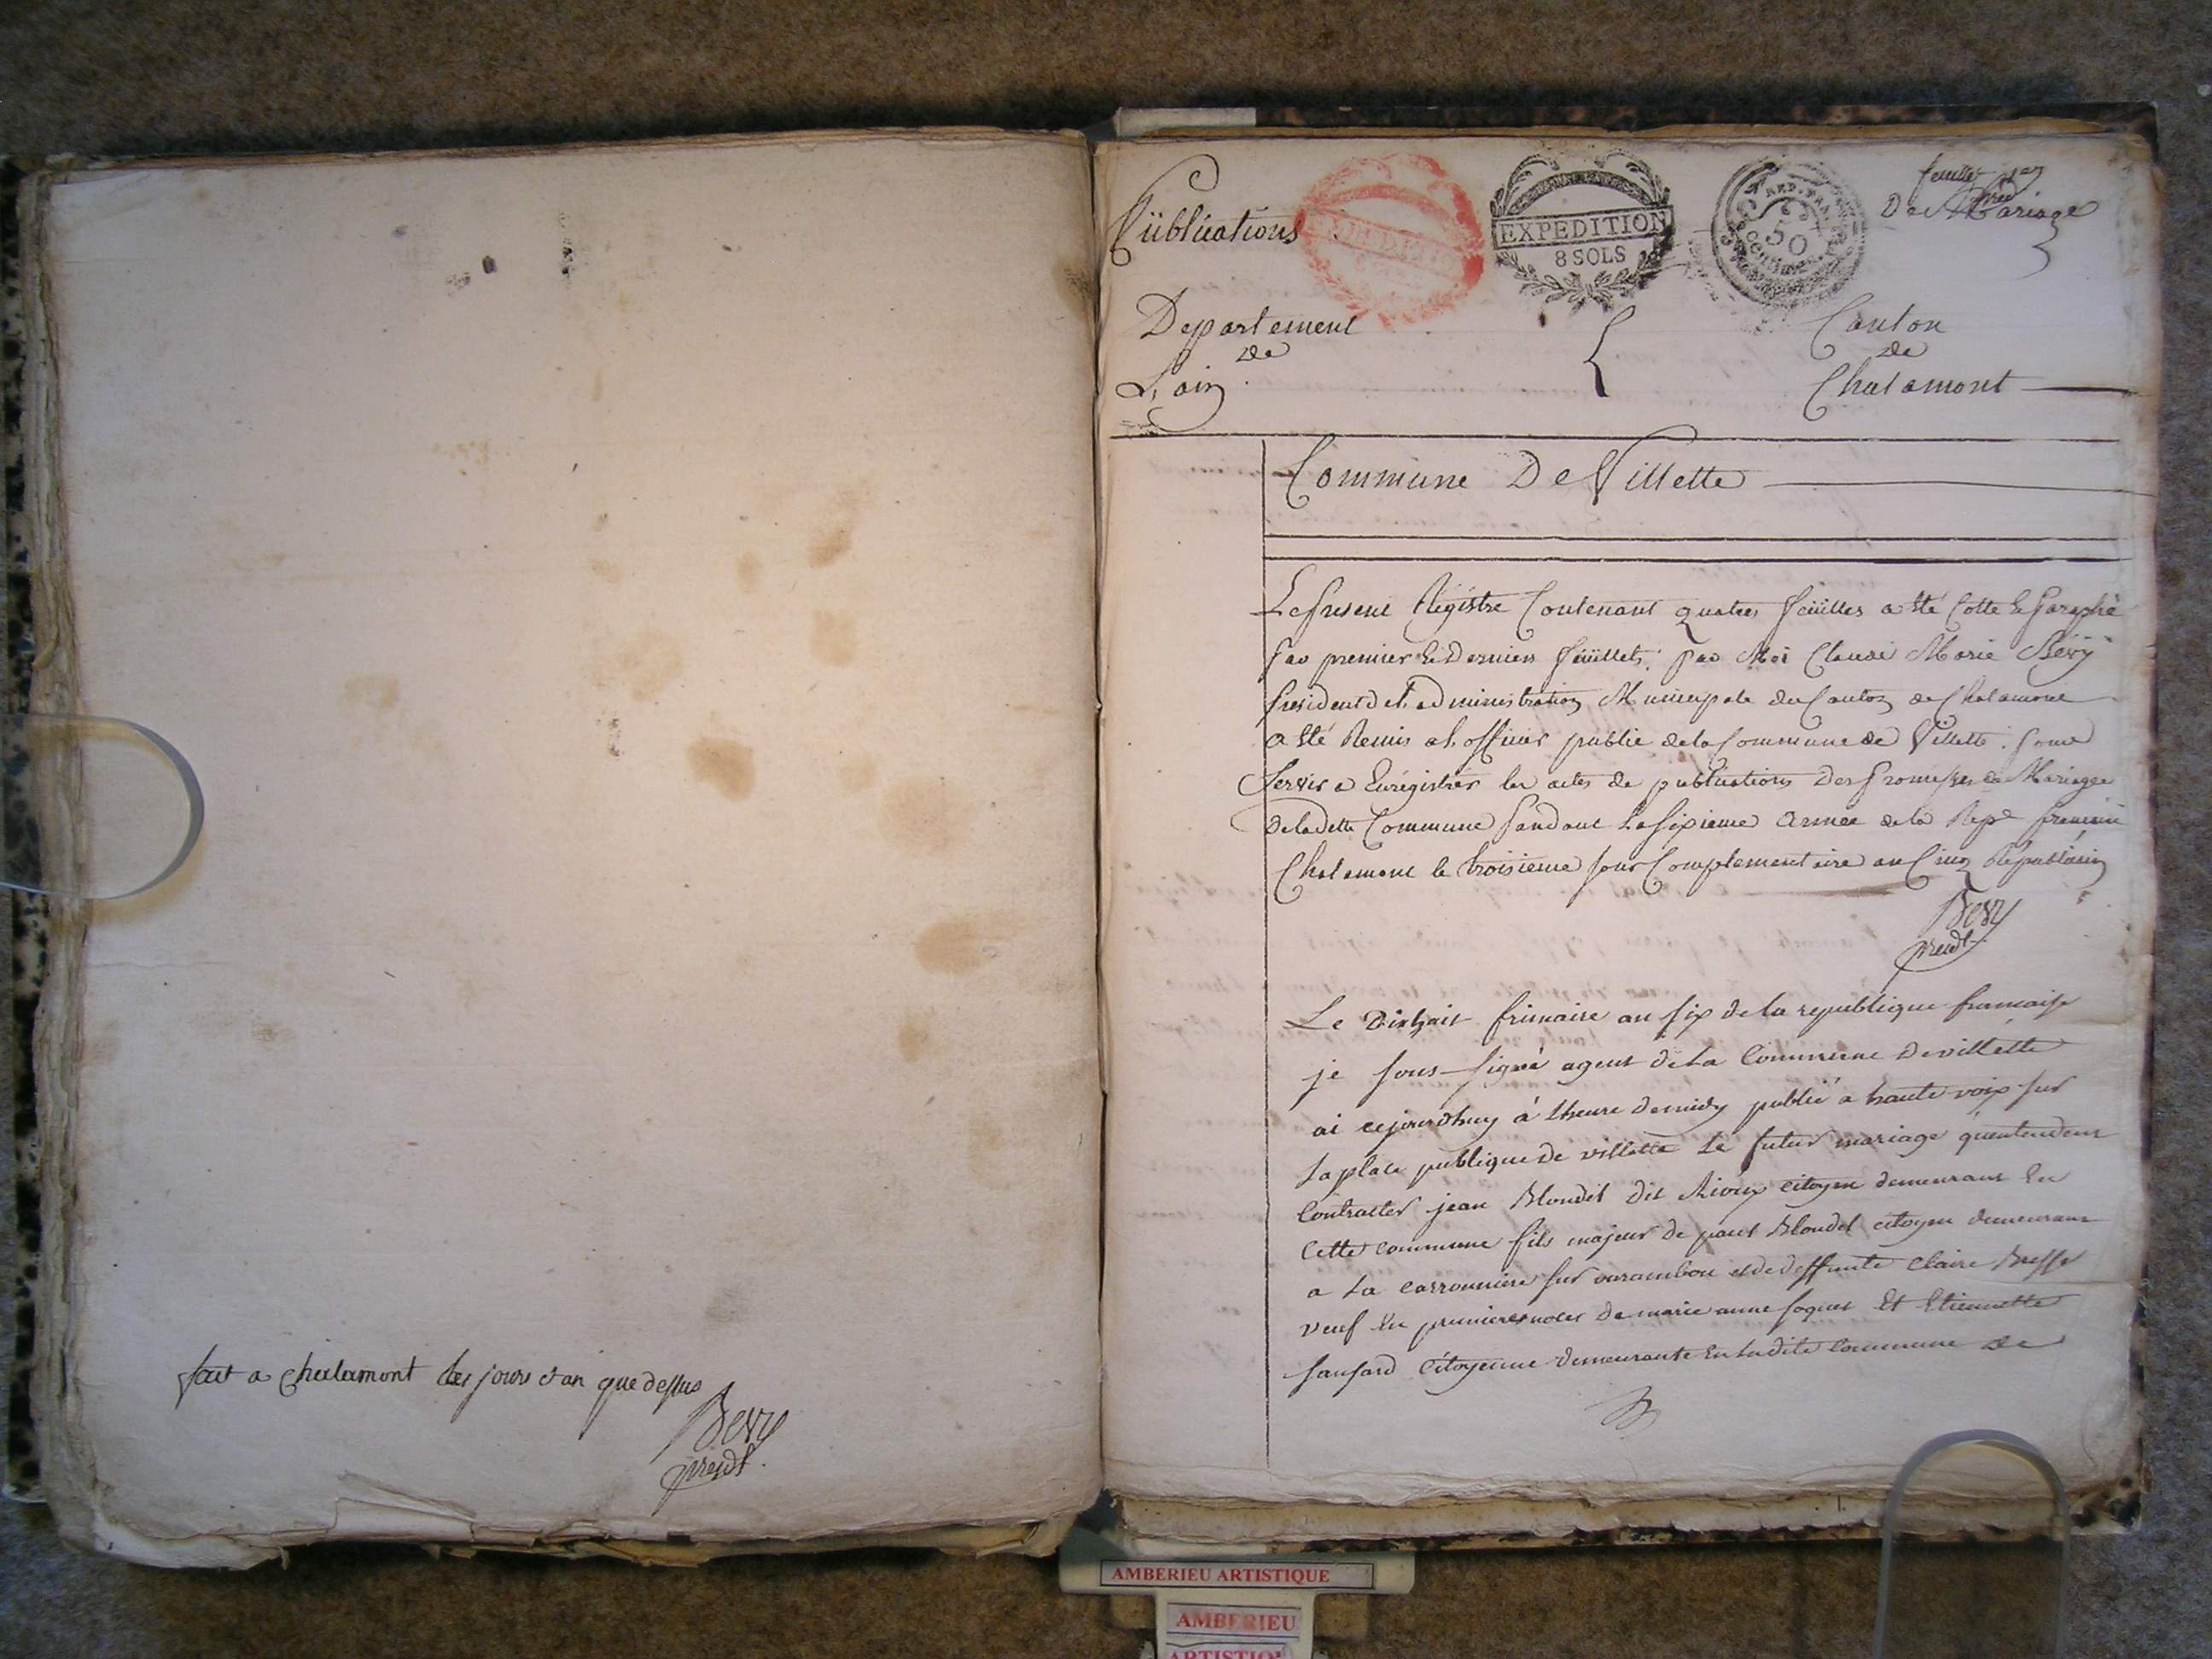 fait a chalamont les jours et an que dessus
Bevy
presdt.
Publications
EXPEDITION
8 SOLS
REP. FRA.
50
Centimes
feuillet 1er
De Mariage
Departement
de
L'ain
Canton
de
Chalamont
Commune De Villette
Le present Régistre Contenant quatres feüilles a été Cotté et Paraphé
par premier et Dernier feüillets, par Moi Claude Marie Bévÿ
President de L'administration Municipale du Canton de Chalamont
a été Remis a L'officier public de la Commune de Villette pour
Servir a Enrégistrer les actes de publications Des Promesses de Mariage
De ladette Commune Pandant La sixieme Année de la Repe francaise
Chalamont le troisieme Jour Complementaire an Cinq Républicain
Bevy
presdt.
Le Dixhuit frimaire an six de la republique francaise
je sous-signé agent de La Commune de villette
ai cejourdhuy á Lheure demidy publié a haute voix sur
La place publique de villette Le futur mariage quentendent
Contracter jean Blondel dit citoyen demeurant En
Cette commune fils majeur de paul Blondel citoyen demeurant
a La carronniere sur varambon et de deffunte Claire
veuf En premieres noces de marie anne Et Etiennette
citoyenne demeurante En Ladite Commune de
B
AMBERIEU ARTISTIQUE
AMBERIEU
ARTISTIQUE